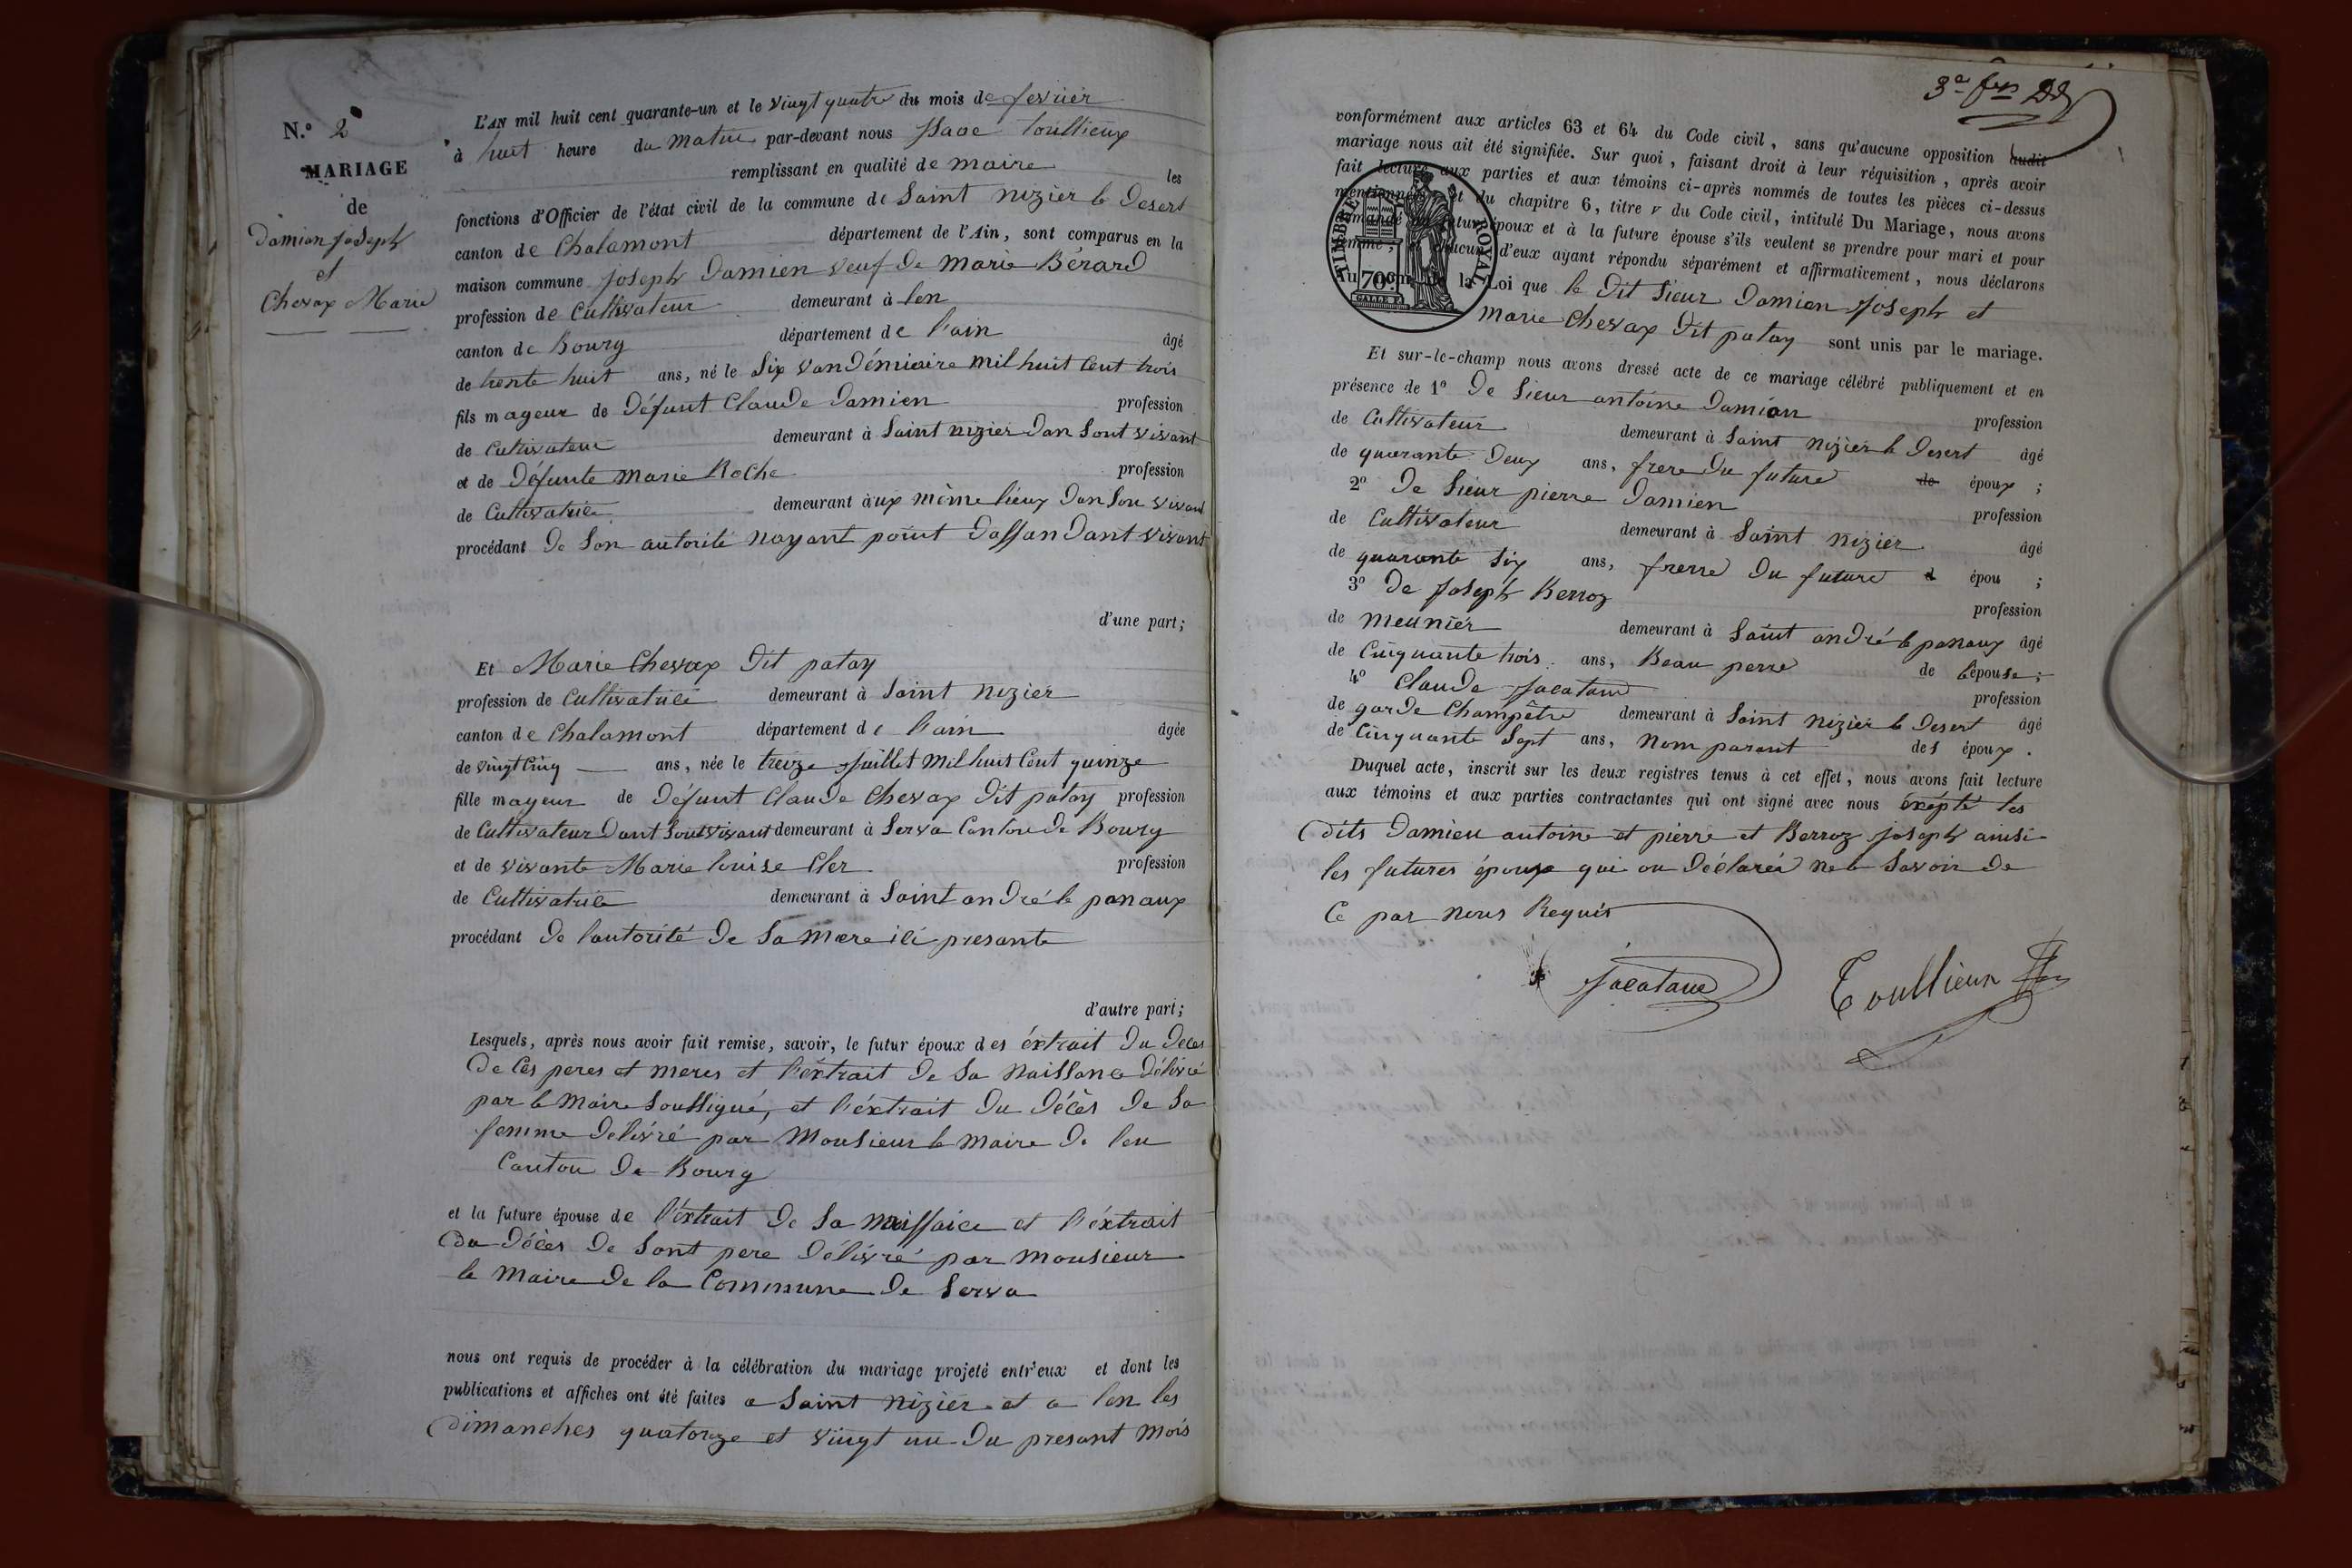 N.° 2
MARIAGE
de
Damien Joseph
et
Chevax Marie
L'AN mil huit cent quarante-un et le vingt quatre du mois de fevrier
à huit heure du matin par-devant nous Isaac Toullieux
remplissant en qualité de maire les
fonctions d'Officier de l'état civil de la commune de Saint nizier le Desert
canton de Chalamont département de l'Ain, sont comparus en la
maison commune Joseph Damien veuf de marie Bérard
profession de Cultivateur demeurant à len
canton de Bourg département de l'ain âgé
de trente huit ans, né le Six vandémiaire mil huit Cent trois
fils mageur de Défunt Claude Damien profession
de Cultivateur demeurant à Saint nizier dan Sont vivant
et de Défunte marie Roche profession
de Cultivatrice demeurant àux même lieux dan Son vivant
procédant De Son autorité nayant point dassandant vivant
d'une part;
Et Marie Chevax Dit patay
profession de Cultivatrice demeurant à Saint nizier
canton de Chalamont département de l'ain âgée
de vingt Cinq ans, née le treize Juillet mil huit Cent quinze
fille mageur de Défunt Claude Chevax Dit patay profession
de Cultivateur Dant Sont vivant demeurant à Serva Canton De Bourg
et de vivante Marie louise Cler profession
de Cultivatrice demeurant à Saint andré le panaux
procédant De l'autorité De Sa mere ici presante
d'autre part;
Lesquels, après nous avoir fait remise, savoir, le futur époux des éxtrait Du Deces
De Ces peres et meres et l'éxtrait De Sa Naissance Délivré
par le Maire Soussigné, et l'éxtrait Du Décès De Sa
femme Delivré par Monsieur le maire De len
Canton De Bourg
et la future épouse de l'éxtrait De Sa naissaice et l'éxtrait
Du Décès De Sont pere Délivré par monsieur
le Maire De la Commune De Serva
nous ont requis de procéder à la célébration du mariage projeté entr'eux et dont les
publications et affiches ont été faites a Saint nizier et a len les
Dimanches quatorze et vingt un Du presant mois
3e
conformément aux articles 63 et 64 du Code civil, sans qu'aucune opposition audit
mariage nous ait été signifiée. Sur quoi, faisant droit à leur réquisition, après avoir
fait lecture aux parties et aux témoins ci-après nommés de toutes les pièces ci-dessus
mentionnées et du chapitre 6, titre v du Code civil, intitulé Du Mariage, nous avons
demandé au futur époux et à la future épouse s'ils veulent se prendre pour mari et pour
femme; et chacun d'eux ayant répondu séparément et affirmativement, nous déclarons
au nom de la Loi que le Dit Sieur Damien Joseph et
TIMBRE ROYAL
70c.
marie Chevax Dit patay sont unis par le mariage.
Et sur-le-champ nous avons dressé acte de ce mariage célébré publiquement et en
présence de 1° De Sieur antoine Damian profession
de Cultivateur demeurant à Saint nizier le Desert âgé
de quarante Deux ans, frere Du future de époux ;
2° De Sieur pierre Damien profession
de Cultivateur demeurant à Saint nizier âgé
de quarante Six ans, frerre Du future d épou ;
3° De Joseph Berroz profession
de meunier demeurant à Saint andré le panaux âgé
de Cinquante trois ans, Beau perre de l'épouse;
4° Claude Jacataud profession
de garde Champêtre demeurant à Saint nizier le Desert âgé
de Cinquante Sept ans, Nom parant des époux.
Duquel acte, inscrit sur les deux registres tenus à cet effet, nous avons fait lecture
aux témoins et aux parties contractantes qui ont signé avec nous éxépté les
Dits Damien antoine et pierre et Berroz Joseph ainsi
les futures époux qui on Déclarés ne le Savoir De
Ce par nous Requis
Toullieux